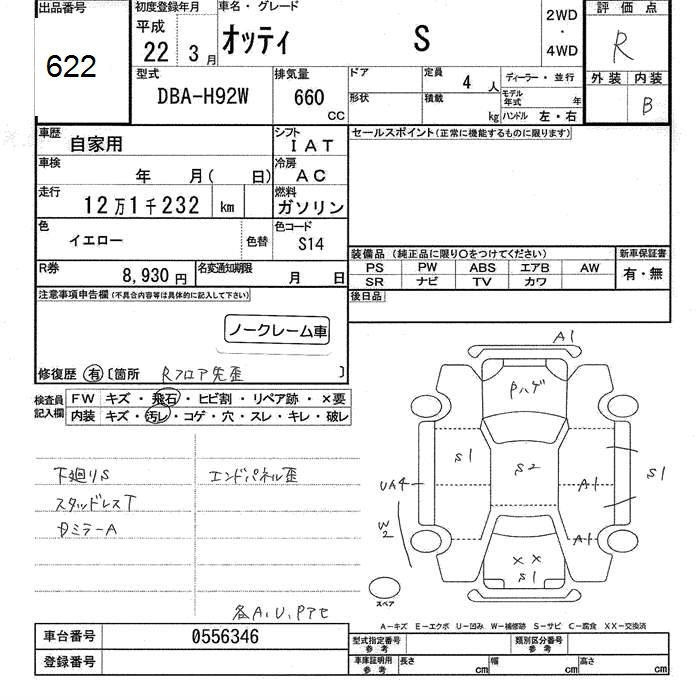 出品番号
622
初度登録年月
平成
22 3月
車名・グレード
オッティ S
2WD
・
4WD
評価点
R
外装 内装
B
型式
DBA-H92W
排気量
660 CC
ドア
形状
定員 4人
積載 kg
ディーラー・並行
モデル年式 年
ハンドル 左・右
車歴
自家用
シフト
IAT
車検
年 月( 日)
冷房
AC
走行
12万1千232 km
燃料
ガソリン
色
イエロー
色替
色コード
S14
R券
8,930円
名変通知期限
月 日
セールスポイント(正常に機能するものに限ります)
装備品(純正品に限り○をつけてください)
PS PW ABS エアB AW
SR ナビ TV カワ
新車保証書
有・無
後日品
注意事項申告欄(不具合内容等は具体的に記入して下さい)
ノークレーム車
修復歴 有 〔箇所 Rフロア先歪 〕
検査員記入欄
FW キズ・飛石・ヒビ割・リペア跡・×要
内装 キズ・汚レ・コゲ・穴・スレ・キレ・破レ
下廻りS
エンドパネル歪
スタッドレスT
ミラーA
各A,U,Pアセ
A1
Pハゲ
S1
S2
UA4
A1
S1
W2
A1
××
S1
スペア
A-キズ E-エクボ U-凹み W-補修跡 S-サビ C-腐食 XX-交換済
車台番号
0556346
登録番号
型式指定番号
参考
類別区分番号
参考
車庫証明用
参考
長さ cm
幅 cm
高さ cm